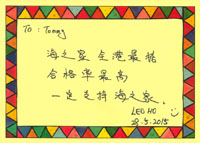 To : Tommy
海之家全港最棒
合格率最高
一定支持海之家.
LEO HO
28.5.2015